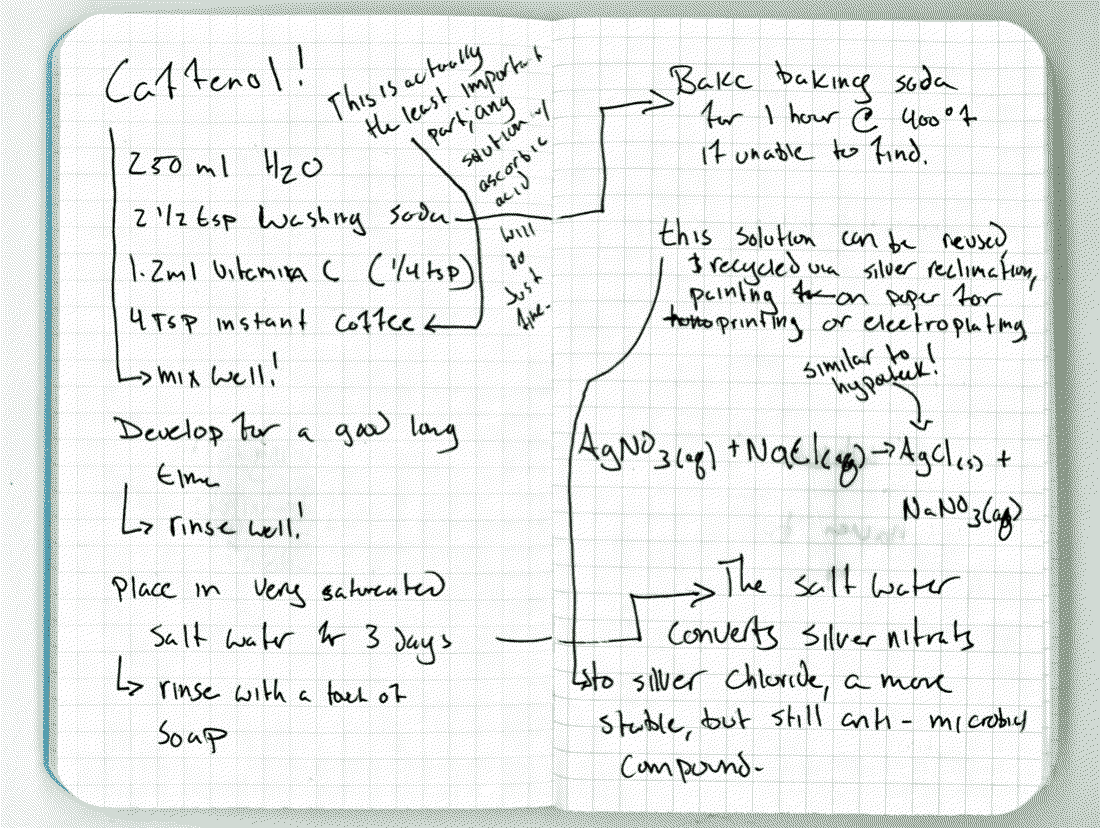 Caffenol!
This is actually
the least important
part; any
solution w/
ascorbic
acid
will
do
just
fine.
250 ml H2O
2 1/2 tsp Washing soda
1.2ml Vitamin C (1/4 tsp)
4 Tsp instant coffee
mix well!
Develop for a good long
time
rinse well!
Place in very saturated
salt water for 3 days
rinse with a touch of
soap
Bake baking soda
for 1 hour @ 400°f
if unable to find.
this solution can be reused
& recycled via silver reclimation,
painting on paper for
printing or electroplating
similar to
AgNO3(aq) + NaCl(aq) → AgCl(s) +
NaNO3(aq)
The salt water
converts silver nitrate
to silver chloride, a more
stable, but still anti-microbial
compound.